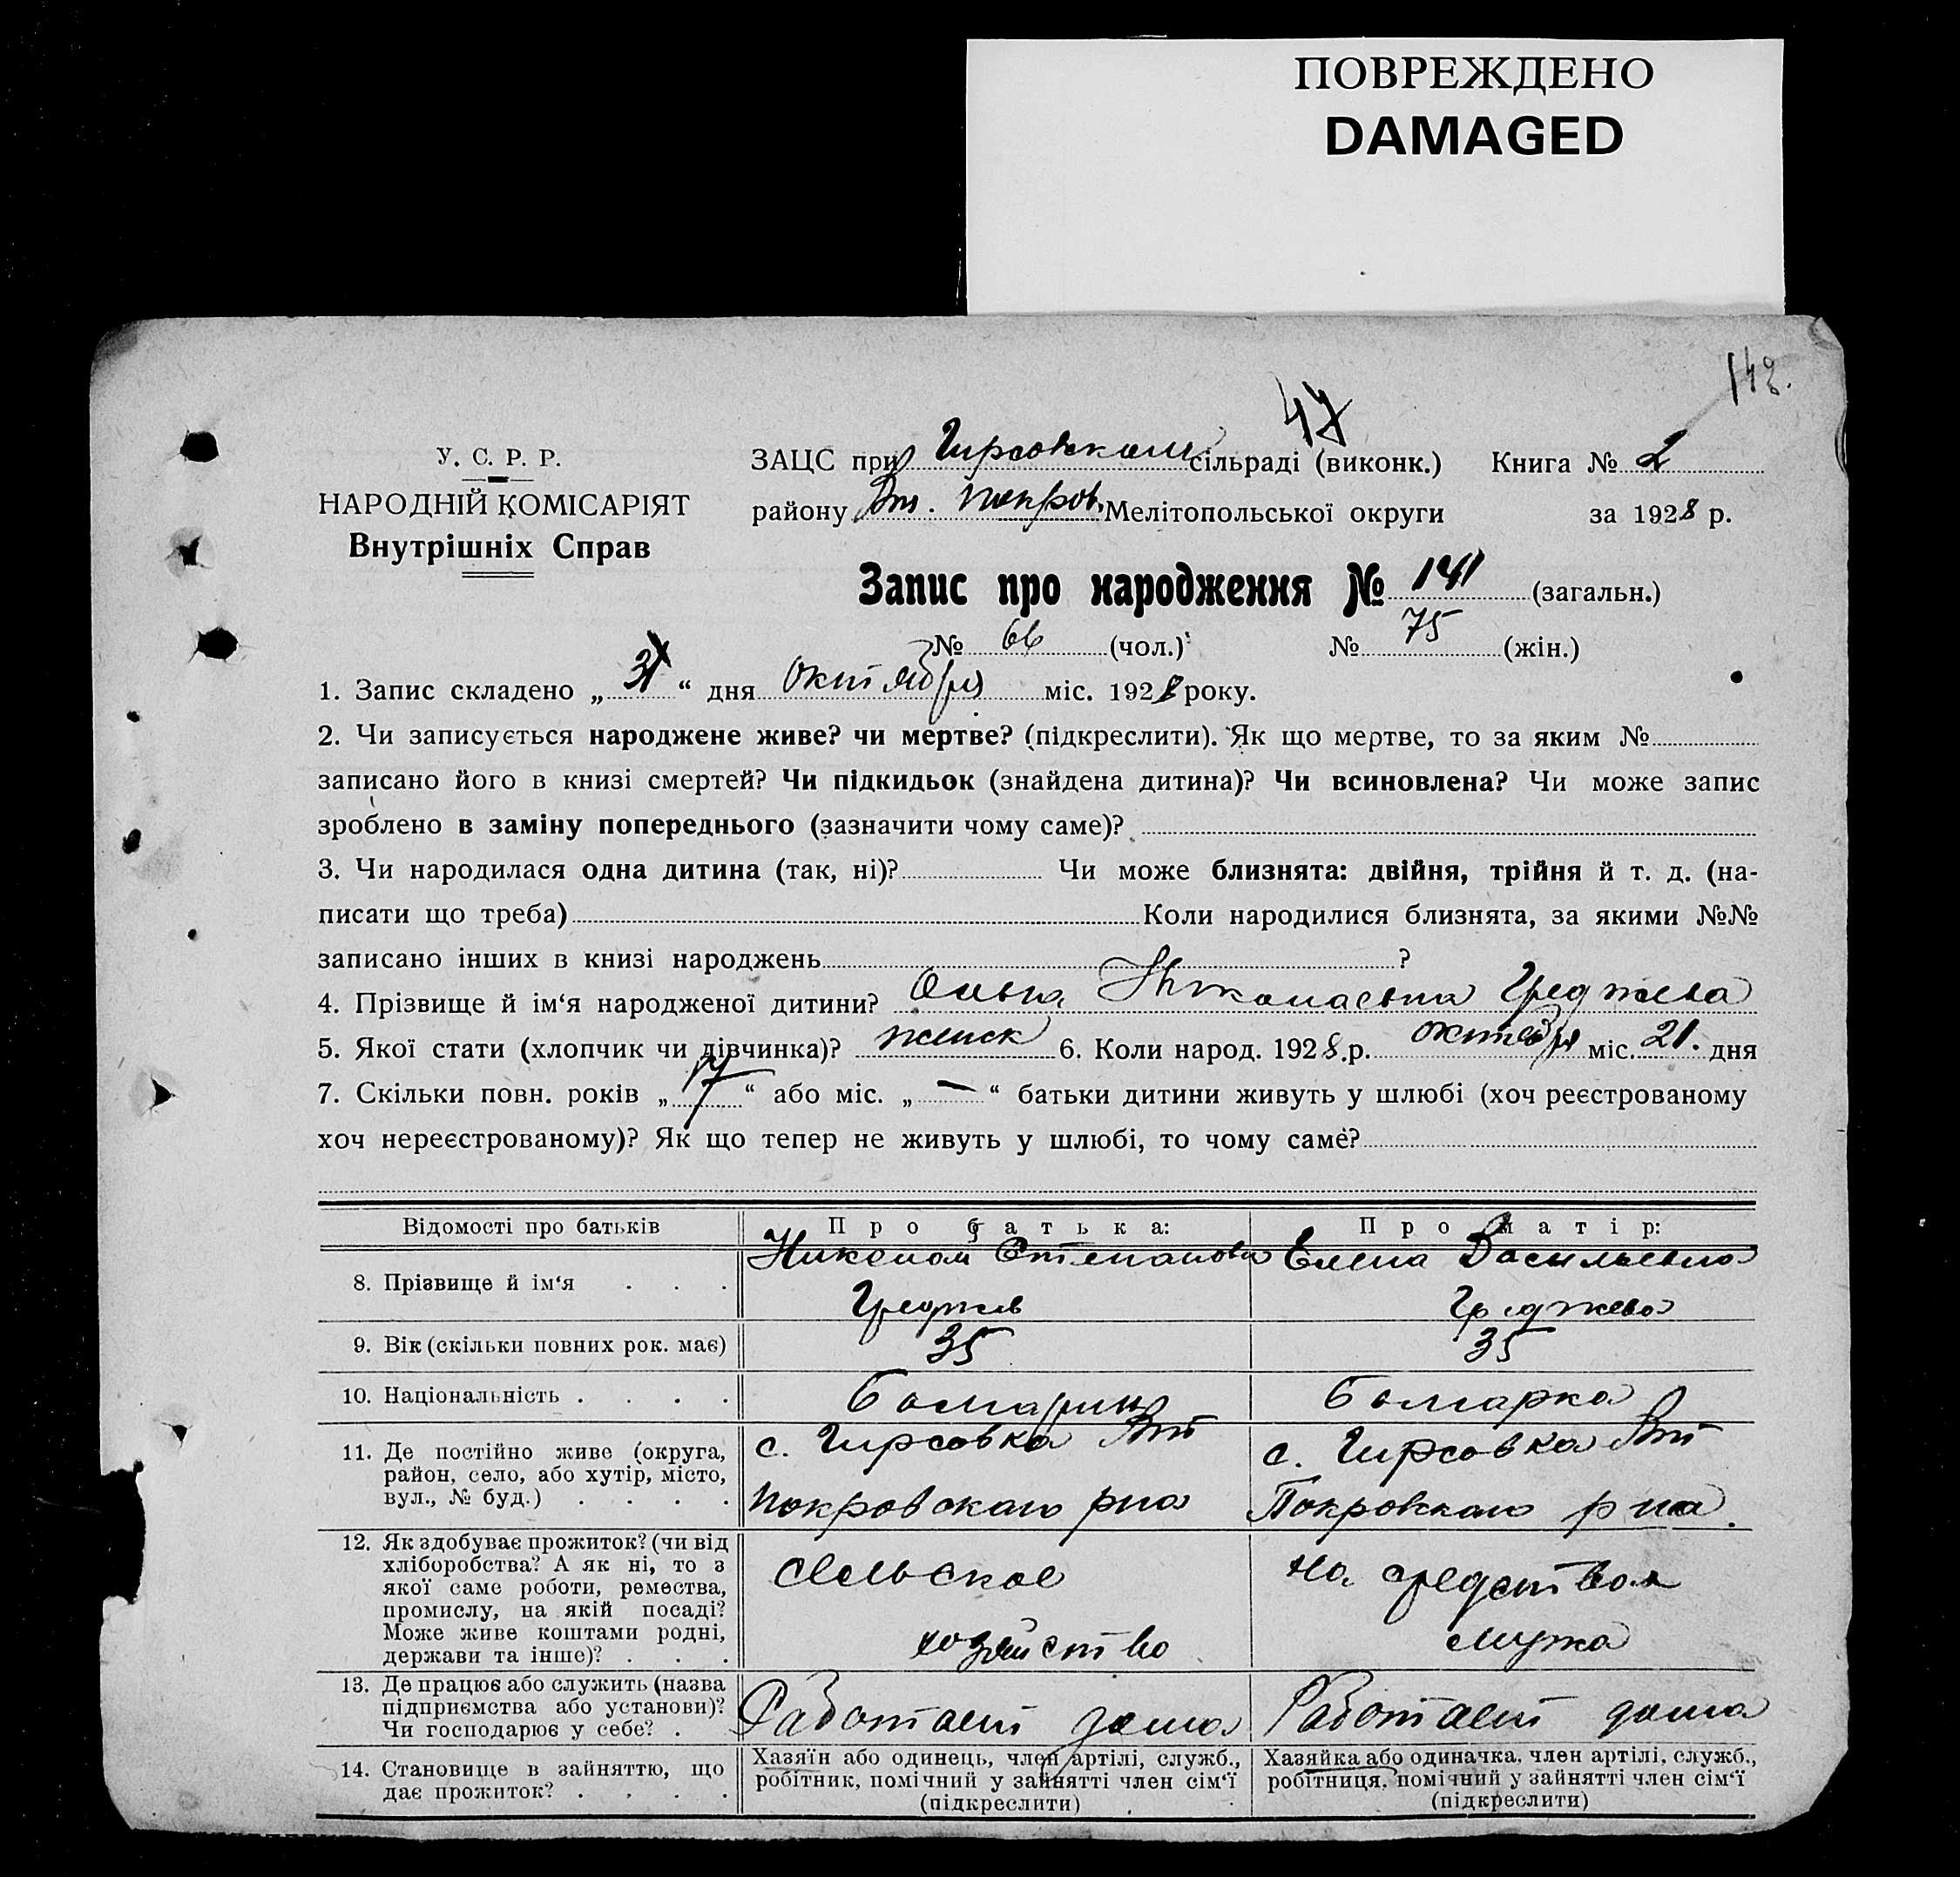 ПОВРЕЖДЕНО
DAMAGED
142.
47
У. С. Р. Р.
НАРОДНІЙ КОМІСАРІЯТ
Внутрішніх Справ
ЗАЦС при Гирсовском сільраді (виконк.) Книга № 2
району Вт. Покров. Мелітопольської округи за 1928 р.
Запис про народження № 141 (загальн.)
№ 66 (чол.) № 75 (жін.)
1. Запис складено „31“ дня октября міс. 1928 року.
2. Чи записується народжене живе? чи мертве? (підкреслити). Як що мертве, то за яким №
записано його в книзі смертей? Чи підкидьок (знайдена дитина)? Чи всиновлена? Чи може запис
зроблено в заміну попереднього (зазначити чому саме)?
3. Чи народилася одна дитина (так, ні)? Чи може близнята: двійня, трійня й т. д. (на-
писати що треба) Коли народилися близнята, за якими №№
записано інших в книзі народжень ?
4. Прізвище й ім‘я народженої дитини? Ольга Николаевна Греджева
5. Якої стати (хлопчик чи дівчинка)? женск 6. Коли народ. 1928.р. октября міс. 21. дня
7. Скільки повн. років „17“ або міс. „—“ батьки дитини живуть у шлюбі (хоч реєстрованому
хоч нереєстрованому)? Як що тепер не живуть у шлюбі, то чому саме?
Відомості про батьків Про батька: Про матір:
8. Прізвище й ім‘я . . . Николай Степанович Елена Васильевна
Греджев Греджева
9. Вік (скільки повних рок. має) 35 35
10. Національність . . . . Болгарин Болгарка
11. Де постійно живе (округа, с. Гирсовка Вт с. Гирсовка Вт
район, село, або хутір, місто,
вул., № буд.) . . . . Покровского рна Покровского рна.
12. Як здобуває прожиток? (чи від
хліборобства? А як ні, то з
якої саме роботи, ремества, Сельское на средствах
промислу, на якій посаді?
Може живе коштами родні, хозяйство мужа
держави та інше)? . . .
13. Де працює або служить (назва
підприємства або установи)? Работает дома Работает дома
Чи господарює у себе? .
14. Становище в зайняттю, що Хазяїн або одинець, член артілі, служб., Хазяйка або одиначка, член артілі, служб.,
дає прожиток? . . . . робітник, помічний у зайнятті член сім‘ї робітниця, помічний у зайнятті член сім‘ї
(підкреслити) (підкреслити)